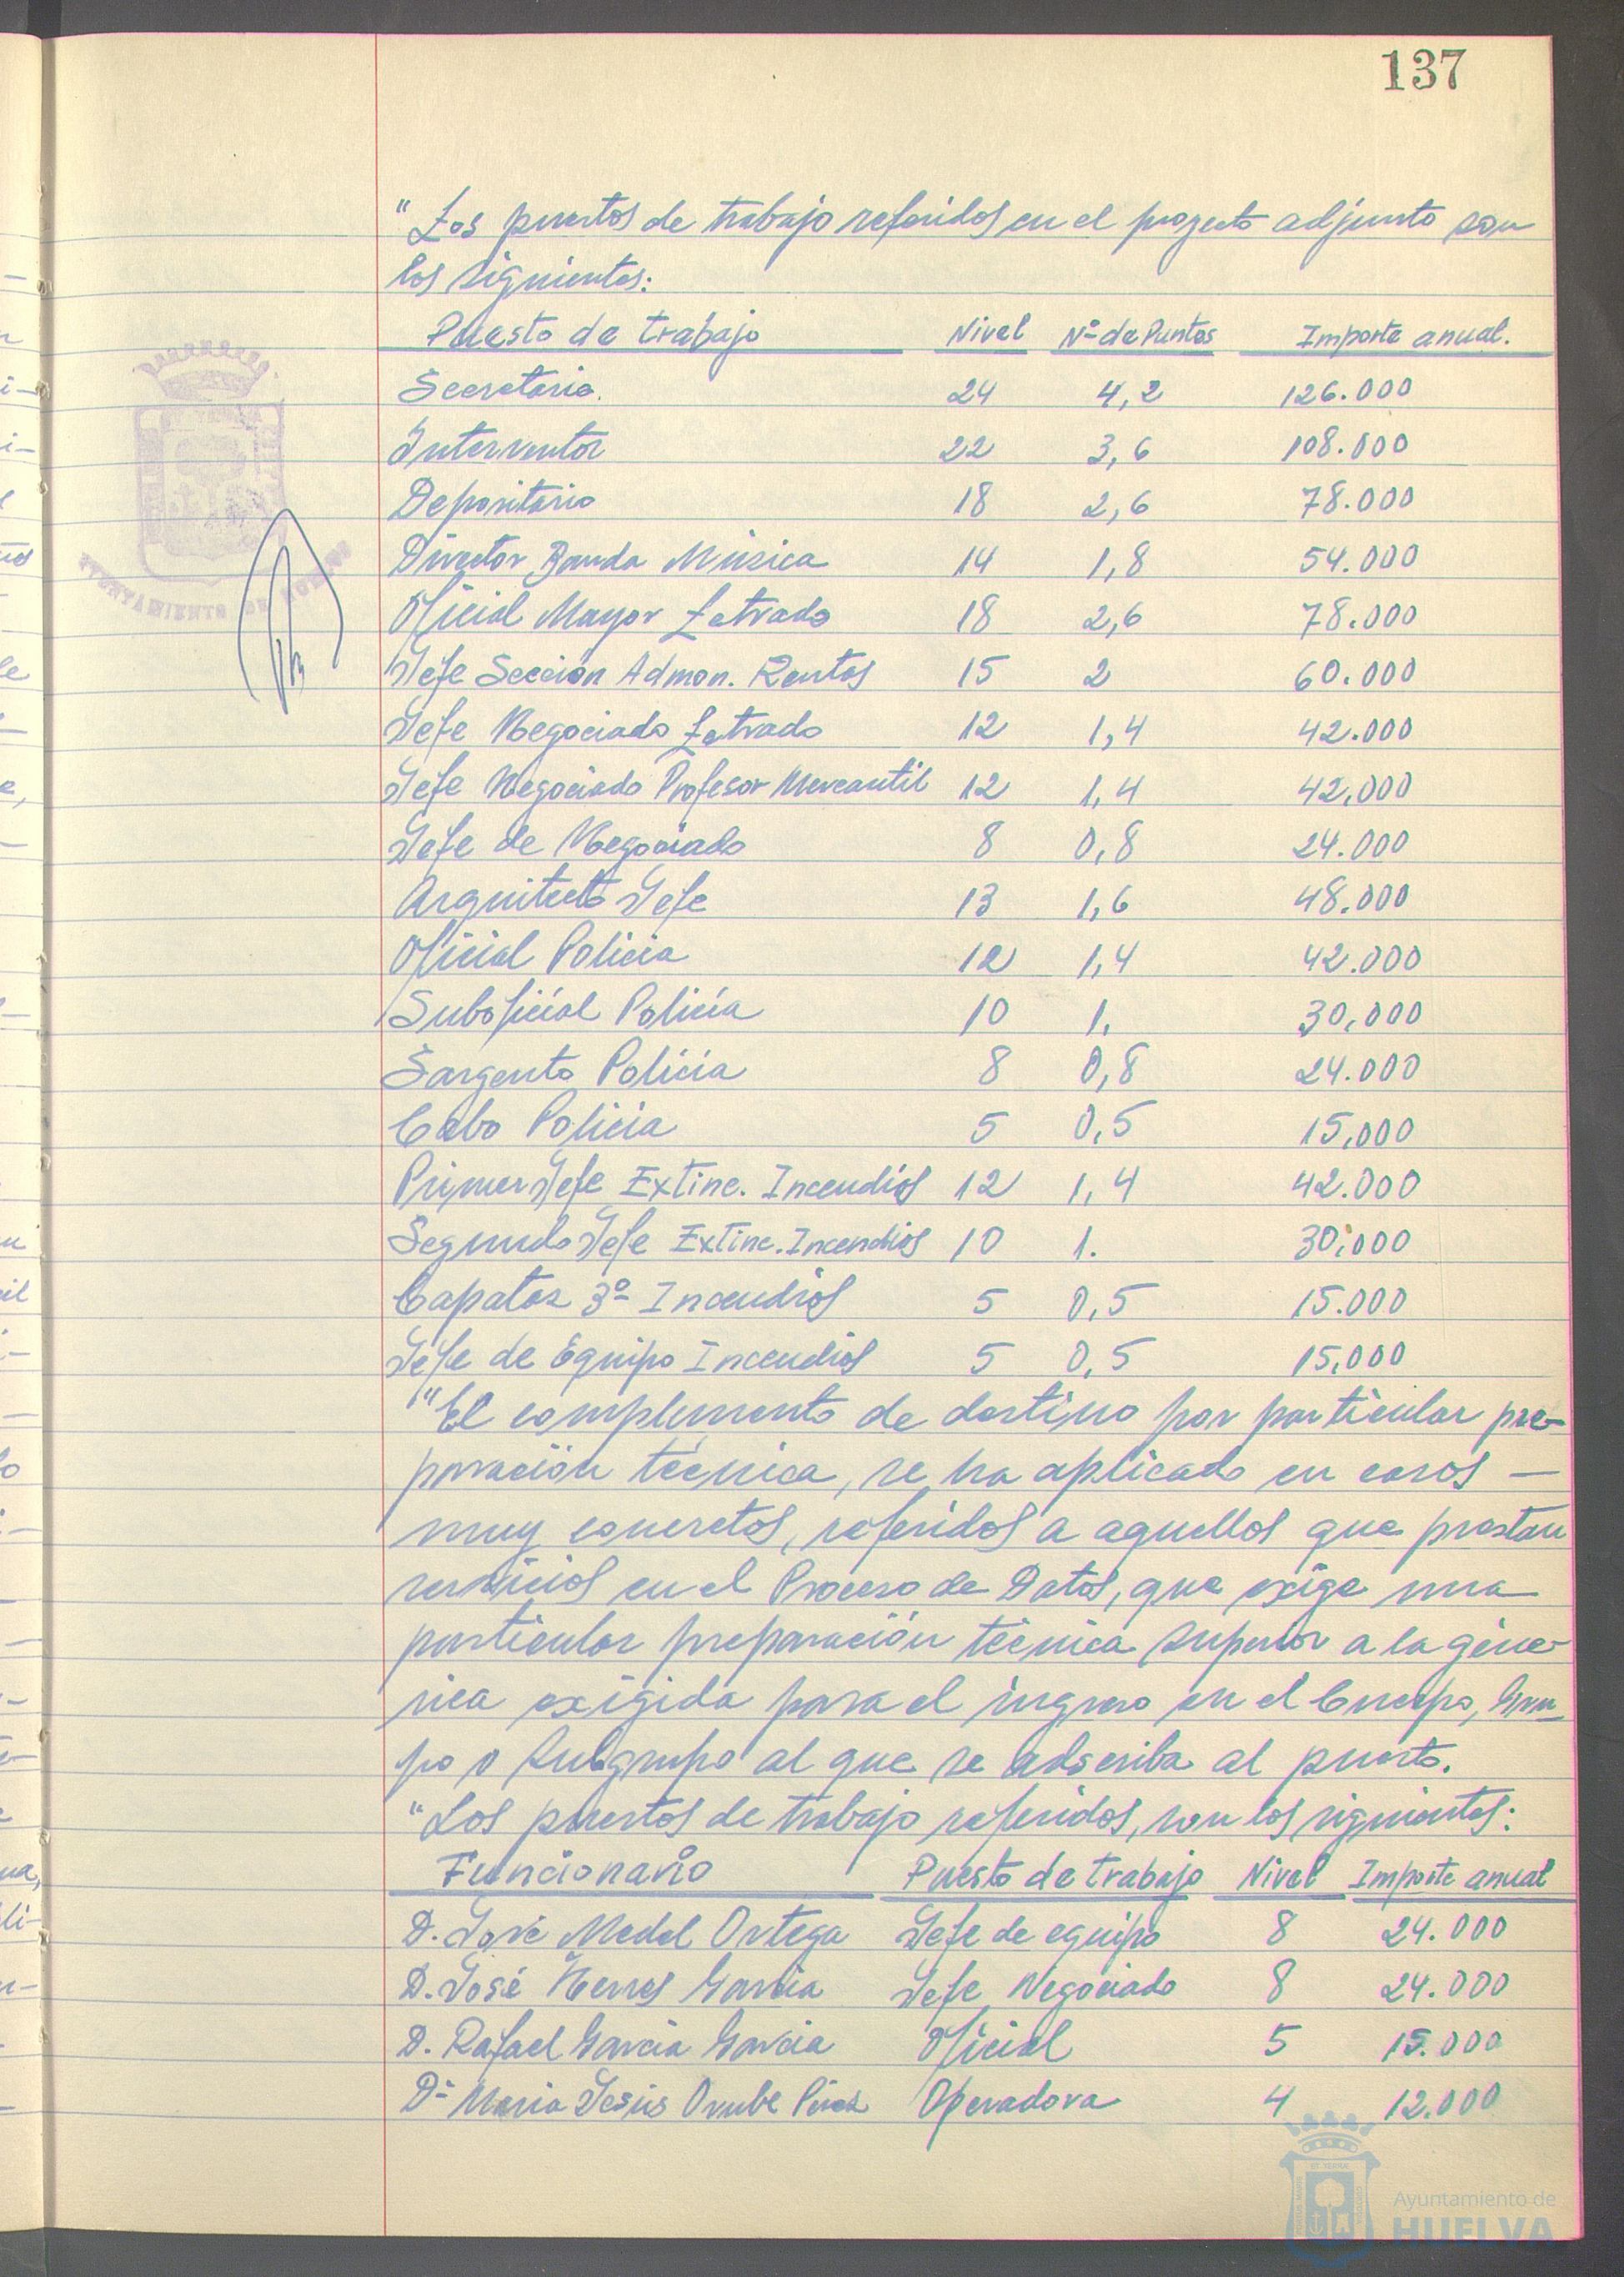 137
"Los puestos de trabajo referidos en el proyecto adjunto son
los siguientes:
Puesto de trabajo Nivel Nº de Puntos Importe anual.
Secretario. 24 4,2 126.000
Interventor 22 3,6 108.000
Depositario 18 2,6 78.000
Director Banda Música 14 1,8 54.000
Oficial Mayor Letrado 18 2,6 78.000
Jefe Sección Admon. Rentas 15 2 60.000
Jefe Negociado Letrado 12 1,4 42.000
Jefe Negociado Profesor Mercantil 12 1,4 42,000
Jefe de Negociado 8 0,8 24.000
Arquitecto Jefe 13 1,6 48.000
Oficial Policia 12 1,4 42.000
Suboficial Policía 10 1, 30,000
Sargento Policía 8 0,8 24.000
Cabo Policia 5 0,5 15,000
Primer Jefe Extinc. Incendios 12 1,4 42.000
Segundo Jefe Extinc. Incendios 10 1. 30.000
Capataz 3º Incendios 5 0,5 15.000
Jefe de Equipo Incendios 5 0,5 15.000
"El complemento de destino por particular pre-
paración técnica, se ha aplicado en casos —
muy concretos, referidos a aquellos que prestan
servicios en el Proceso de Datos, que exige una
particular preparación técnica superior a la géne-
rica exigida para el ingreso en el Cuerpo, Gru-
po o Subgrupo al que se adscriba al puesto.
"Los puestos de trabajo referidos, son los siguientes:
Funcionario Puesto de trabajo Nivel Importe anual
D. José Medel Ortega Jefe de equipo 8 24.000
D. José García Jefe Negociado 8 24.000
D. Rafael García García Oficial 5 15.000
Dª María Jesús Pérez Operadora 4 12.000
AYUNTAMIENTO DE HUELVA
Ayuntamiento de
HUELVA